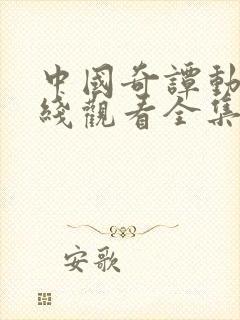 中國奇譚動
綫觀看全集
安歌